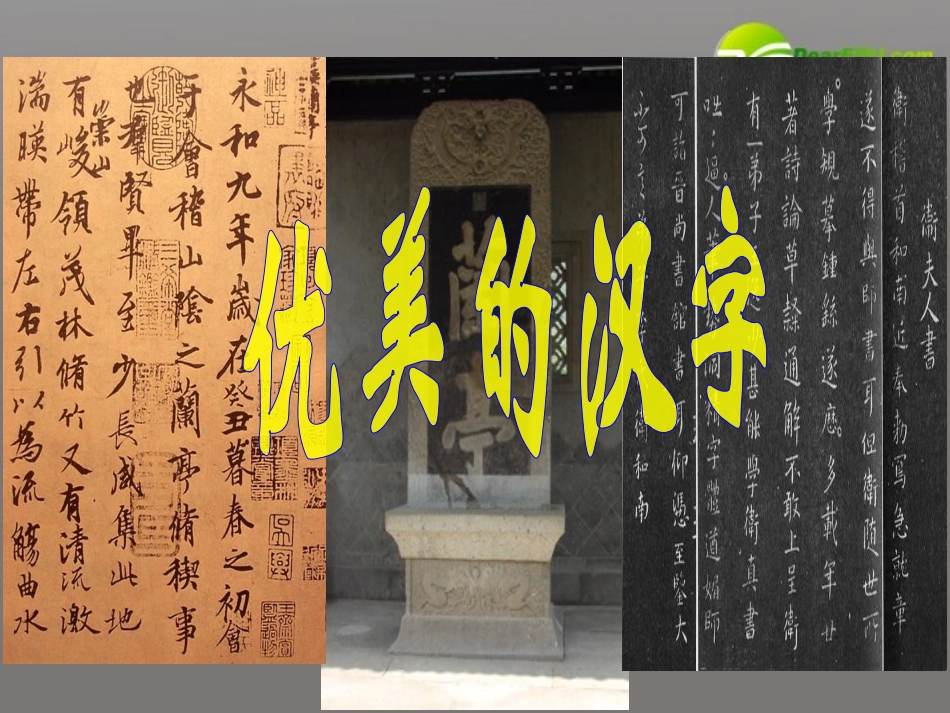 优美的汉字
永和九年歲在癸丑暮春之初會
于會稽山陰之蘭亭脩稧事
也羣賢畢至少長咸集此地
有崇山峻領茂林脩竹又有清流激
湍暎帶左右引以為流觴曲水
蘭亭
衛夫人書
衛稽首和南近奉勅寫急就章
遂不得與師書耳但衛随世所
學規摹鍾繇遂歷多載年廿
著詩論草隸通解不敢上呈衛
有一弟子甚能學衛真書
咄咄逼人洞精字體遒媚師
可詣晉尚書館書耳仰憑至鑒大
不可言衛和南